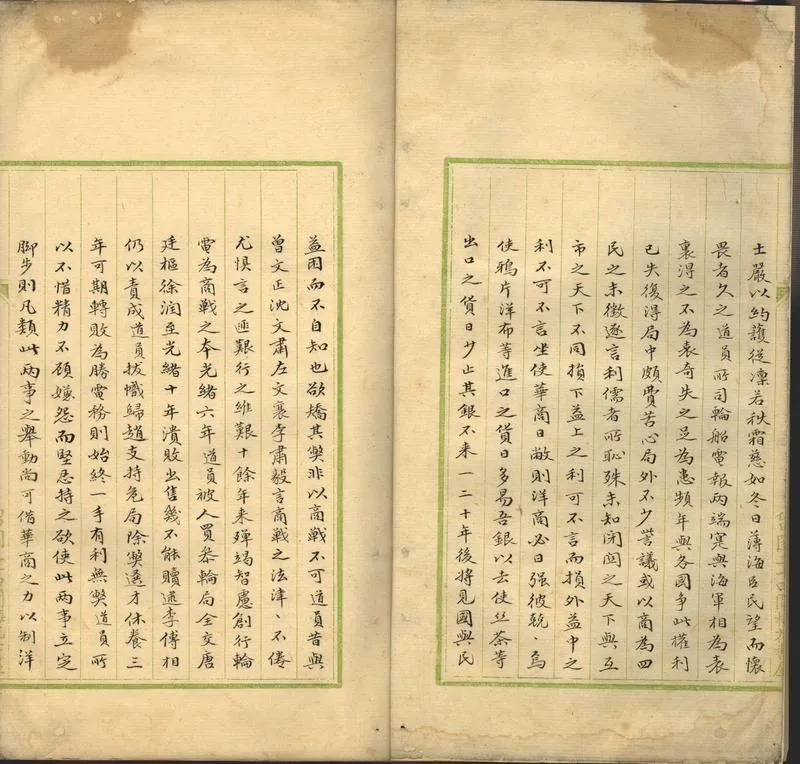 士嚴以約護從凛若秋霜慈如冬日薄海臣民望而懷
畏者久之道員所司輪船電報兩端寔與海軍相為表
裏得之不為表奇失之足為患頻年與各國爭此權利
已失復得局中頗費苦心局外不少訾議或以商為四
民之末徵逐言利儒者所恥殊未知閉關之天下與互
市之天下不同損下益上之利可不言而損外益中之
利不可不言坐使華商日敝則洋商必日强彼兢丶焉
使鴉片洋布等進口之貨日多易吾銀以去使丝茶等
出口之貨日少止其銀不来一二十年後將見國與民
益困而不自知也欲矯其獘非以商戰不可道員昔與
曾文正沈文肅左文襄李肅毅言商戰之法津丶不倦
尤惧言之匪艱行之維艱十餘年来殫竭智慮創行輪
電為商戰之本光緒六年道員被人買參輪局全交唐
廷樞徐潤至光緒十年潰敗出售幾不能贖還李傅相
仍以責成道員拔幟歸趙支持危局除獘選才休養三
年可期轉敗為勝電務則始終一手有利無獘道員所
以不惜精力不顧嫌怨而堅忍持之欲使此兩事立定
脚步則凡類此兩事之舉動尚可借華商之力以制洋